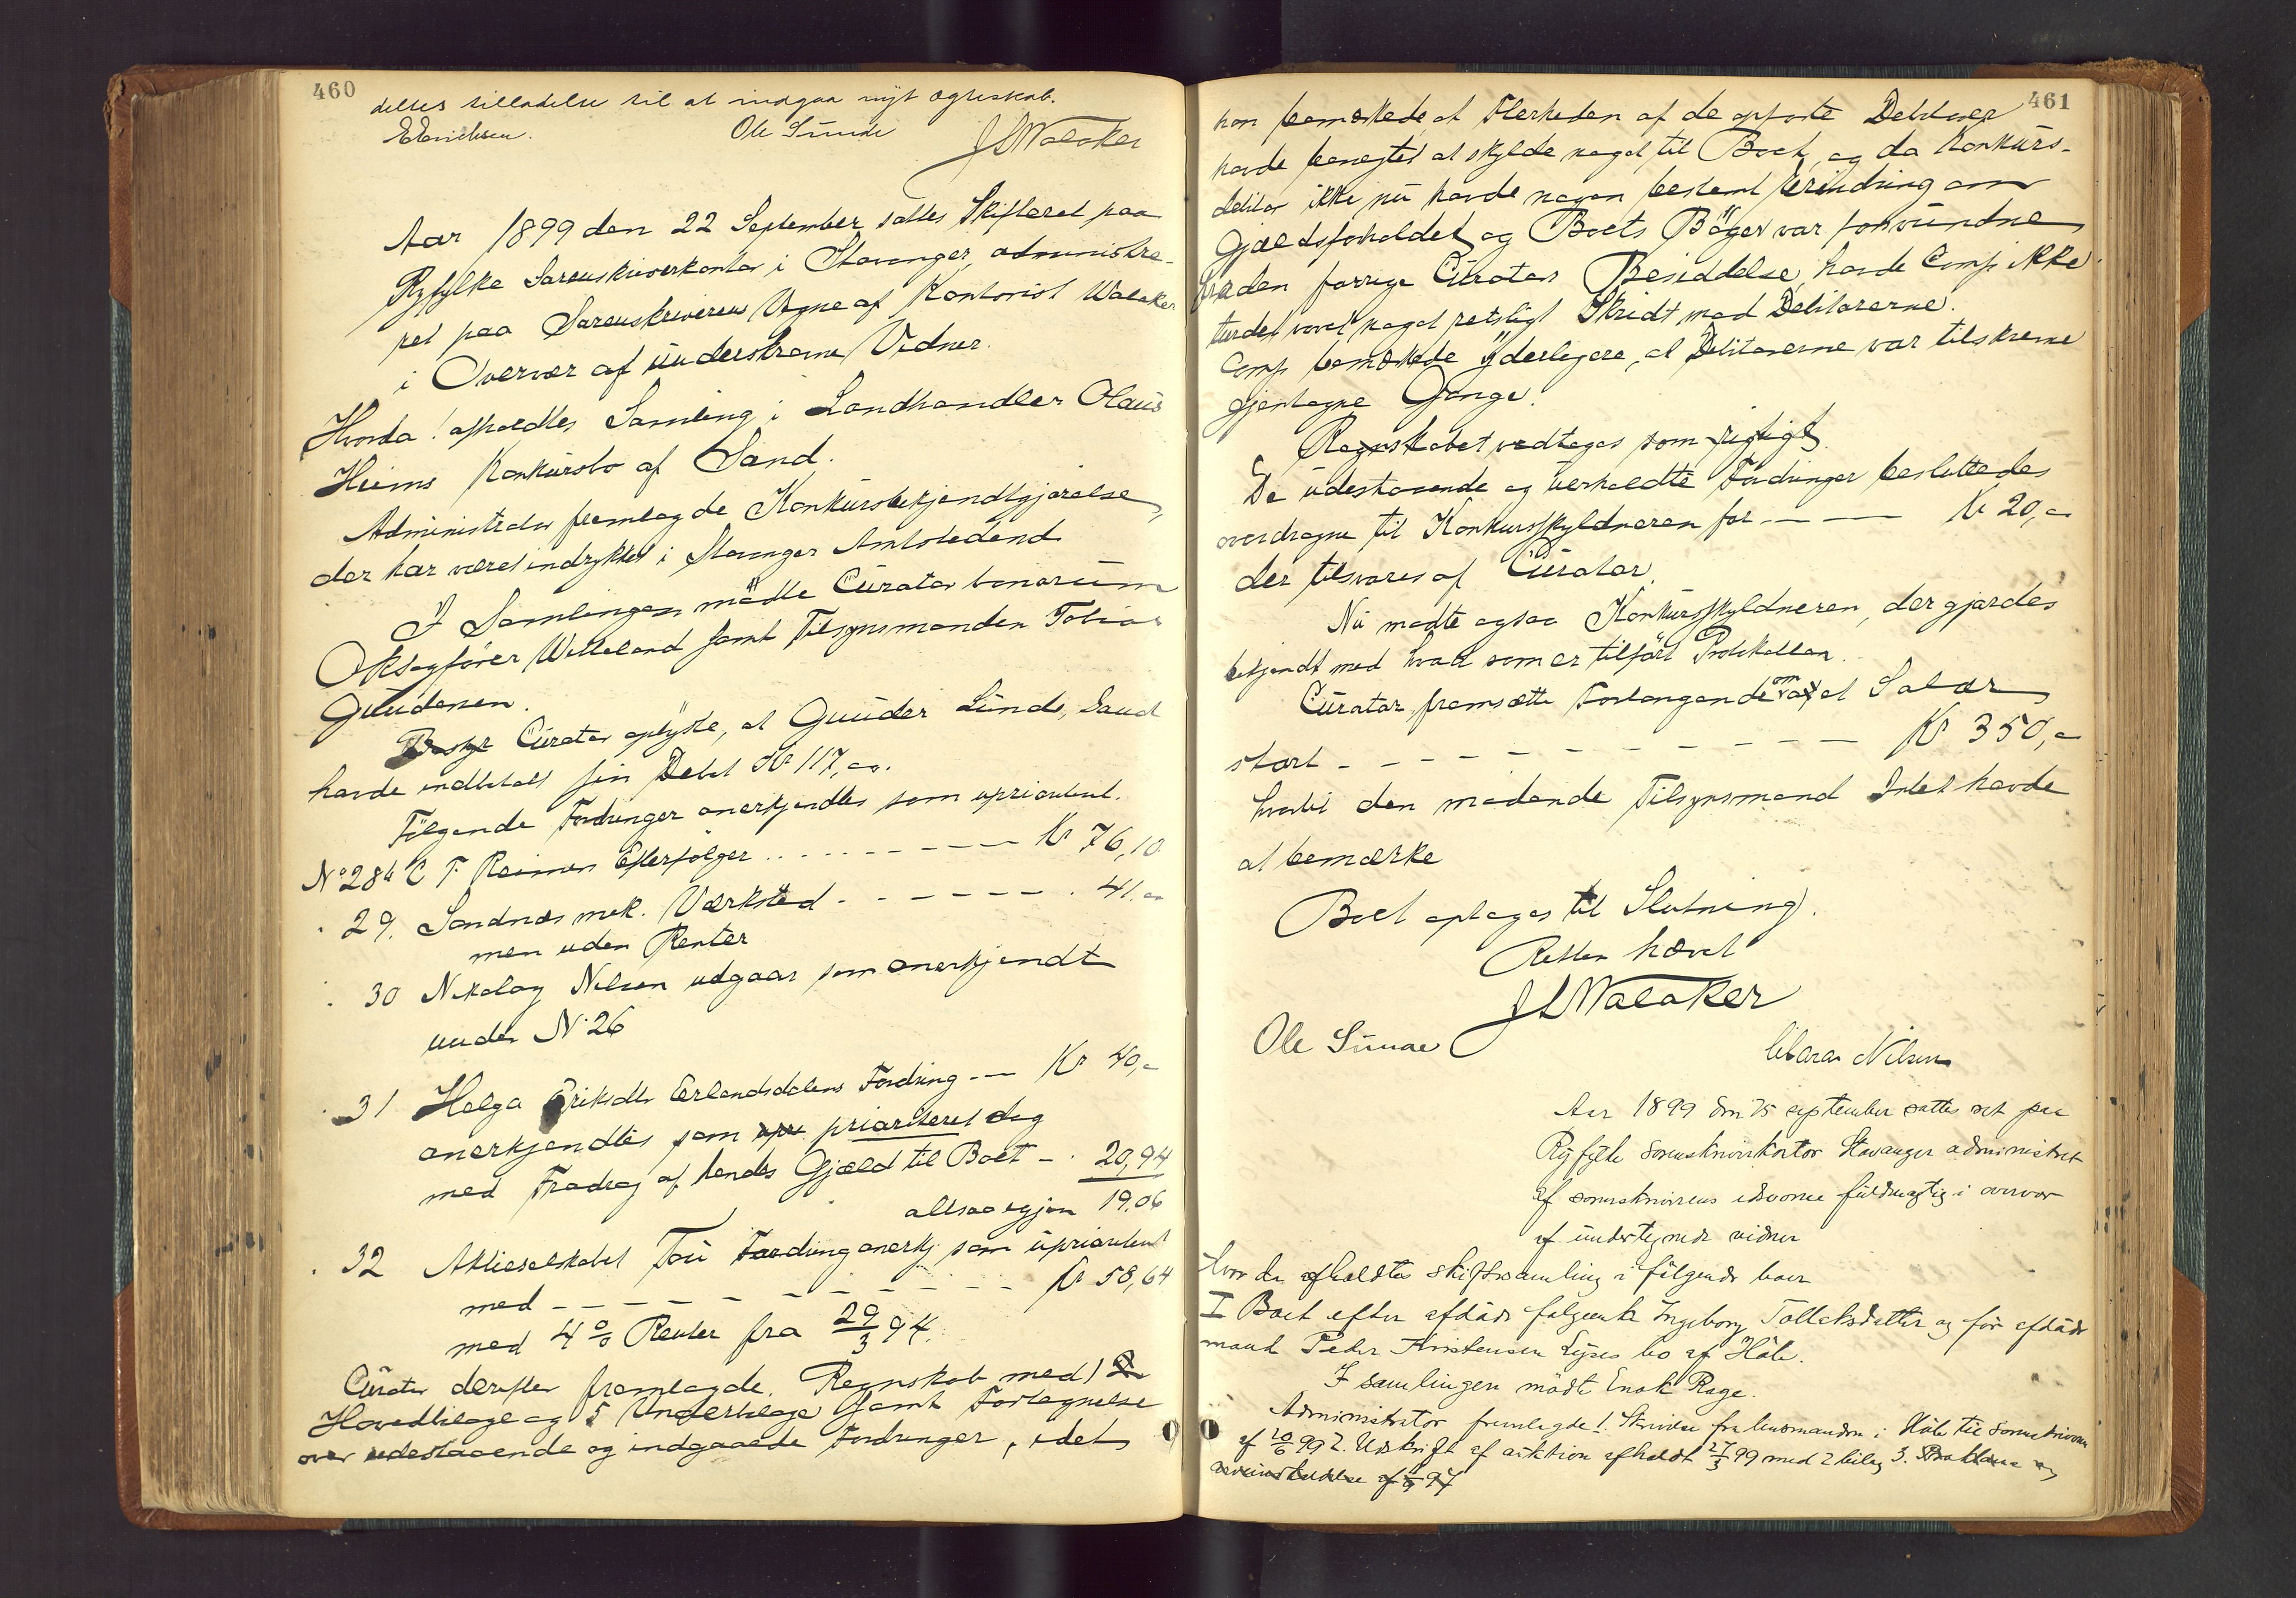 460
deltes tilladelse til at indgaa nyt ægteskab.
Ole Sunde
J S Walaker
Aar 1899 den 22 September sattes Skifteret paa
Ryfylke Sorenskriverkontor i Stavanger, administre-
ret paa Sorenskriverens Vegne af Kontorist Walaker
i Overvær af understrevne Vidner.
Hvorda! afholdtes Samling i Landhandler Olaus
Heims Konkursbo af Sand.
Administrator fremlagde Konkursbekjendtgjørelse,
der har været indrykket i Stavanger Amtstidend
I Samlingen mødte Curator bonorum
Oksagfører Welleland samt Tilsynsmanden Tobias
Gundersen.
Curator oplyste, at Gunder Lunde, Sand
havde indbetalt sin Debet Kr 117,00.
Følgende Fordringer anerkjendtes som uprioritert.
No 28 C F Reimers Efterfølger Kr 76,10
" 29. Sandnæs mek. Værksted 41.00
men uden Renter
" 30 Nikolay Nilsen udgaar som anerkjendt
under No 26
" 31 Helga Eriksdtr Erlandsdalens Fordring Kr 40,-
anerkjendtes som upr prioriteret dog
med Fradrag af hendes Gjæld til Boet - 20,94
altsaa igjen 19.06
" 32 Aktieselskabet Tou Fordring anerkj som uprioritert
med Kr 58,64
med 4 % Renter fra 29/3 94.
Curator derefter fremlagde. Regnskab med 1
Hovedbilage og 5 Underbilage samt Fortegnelse
over udestaaende og indgaaede Fordringer, idet
461
han bemærkede, at Flerheden af de opførte Debitorer
havde benegtet at skylde noget til Boet, og da Konkurs-
debitor ikke nu havde nogen bestemt Erindring om
Gjældsforholdet og Boets Bøger var forsvundne
fra den forrige Curators Besiddelse, havde Comp ikke
turdet vovet noget retsligt Skridt mod Debitorerne.
Comp bemærkede yderligere, at Debitorerne var tilskrevne
gjentagne Gange.
Regnskabet vedtoges som rigtigt.
De udestaaende og uerholdte Fordringer besluttedes
overdragne til Konkursskyldneren for Kr 20,00
der tilsvares af Curator.
Nu mødte ogsaa Konkursskyldneren, der gjordes
bekjendt med hvad som er tilført Protokollen.
Curator fremsatte Forlangende om et Salær
stort Kr 350,00
hvortil den mødende Tilsynsmand Intet havde
at bemærke
Boet optages til Slutning.
Retten hævet
J S Walaker
Ole Sunde
Clara Nilsen
Aar 1899 den 25 september sattes ret paa
Ryfylke sorenskriverkontor Stavanger administret
af sorenskriverens edsvorne fuldmægtig i overvær
af undertegnede vidner
Hvor da afholdtes skiftesamling i følgende boer
I Boet efter afdøde Ingeborg Tollaksdatter og før afdøde
mand Peder Kristensen Lyses bo af Høle.
I samlingen mødte Enok Rage.
Administrator fremlagde 1. Skrivelse fra lensmanden i Høle til sorenskriveren
af 10/6 99 2. Udskrift af auktion afholdt 27/3 99 med 2 bilag 3.